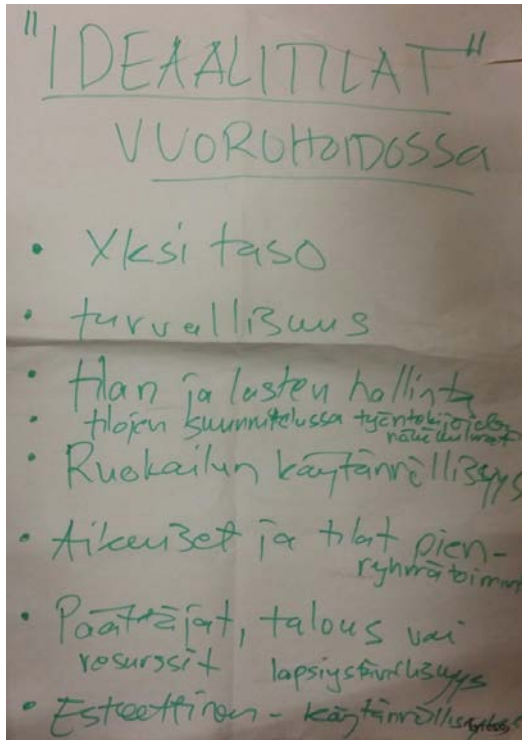 "IDEAALITILAT"
VUOROHOIDOSSA
• Yksi taso
• turvallisuus
• tilan ja lasten hallinta
• tilojen suunnittelussa työntekijöiden
näkökulmat
• Ruokailun käytännöllisyys
• Aikuiset ja tilat pien-
ryhmätoimin
• Päättäjät, talous vai
resurssit lapsiystävällisyys
• Esteettinen - käytännöllisyys